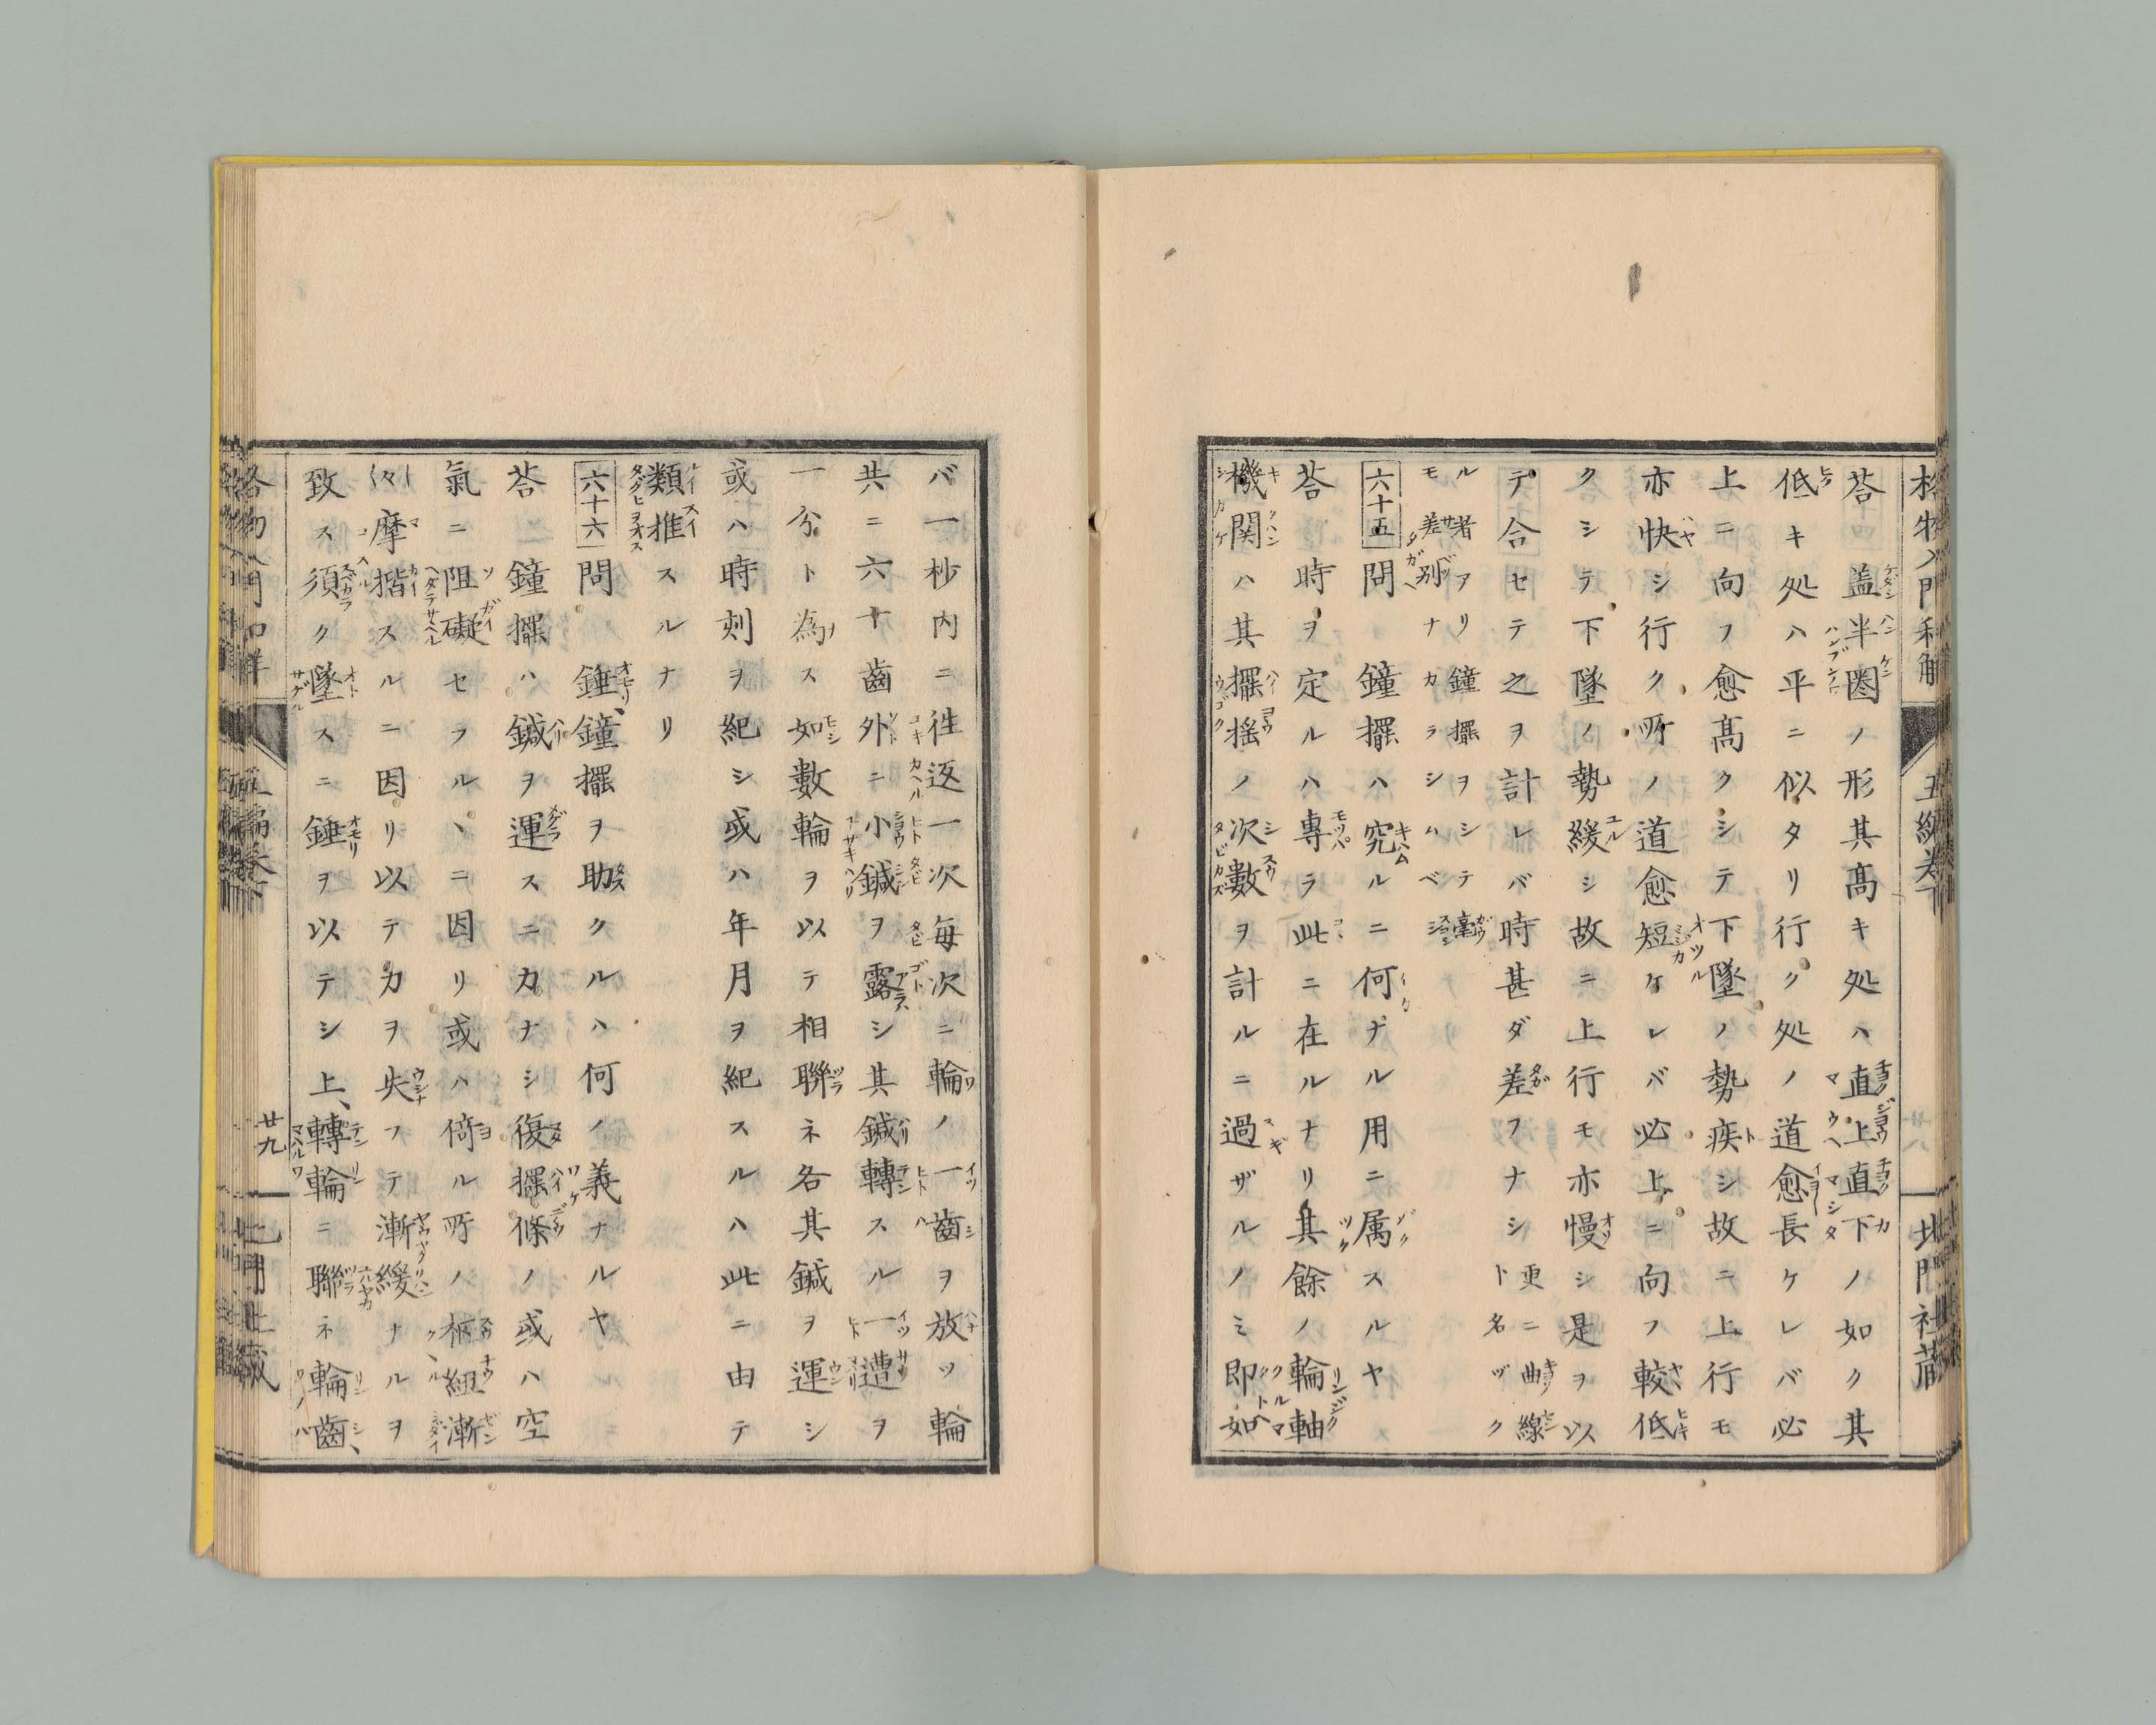 格物入門和解 五編巻下 北門社蔵
荅 盖半圏ノ形其髙キ処ハ直上直下ノ如ク其
低キ処ハ平ニ似タリ行ク処ノ道愈長ケレバ必
上ニ向フ愈髙クシテ下墜ノ勢疾シ故ニ上行モ
亦快シ行ク所ノ道愈短ケレバ必上ニ向フ較低
クシテ下墜ノ勢緩シ故ニ上行モ亦慢シ是ヲ以
テ合セテ之ヲ計レバ時甚ダ差フナシ更ニ曲線ト名ヅク
ル者アリ鐘擺ヲシテ毫モ差別ナカラシムベシ
六十五 問 鐘擺ハ究ルニ何ナル用ニ属スルヤ
荅 時ヲ定ルハ專ラ此ニ在ルナリ其餘ノ輪軸
機関ハ其擺揺ノ次數ヲ計ルニ過ザルノミ即如
バ一杪内ニ徃返一次毎次ニ輪ノ一齒ヲ放ッ輪
共ニ六十齒外ニ小鍼ヲ露シ其鍼轉スル一遭ヲ
一分ト為ス如數輪ヲ以テ相聯ネ各其鍼ヲ運シ
或ハ時刻ヲ紀シ或ハ年月ヲ紀スルハ此ニ由テ
類推スルナリ
六十六 問 錘、鐘擺ヲ助クルハ何ノ義ナルヤ
荅 鐘擺ハ鍼ヲ運スニ力ナシ復擺條ノ或ハ空
氣ニ阻礙セラルヽニ因リ或ハ倚ル所ノ樞紐漸
々摩揩スルニ因リ以テ力ヲ失フテ漸緩ナルヲ
致ス須ク墜スニ錘ヲ以テシ上、轉輪ニ聯ネ輪齒、
格物入門和解 五編巻下 廿九 北門社蔵